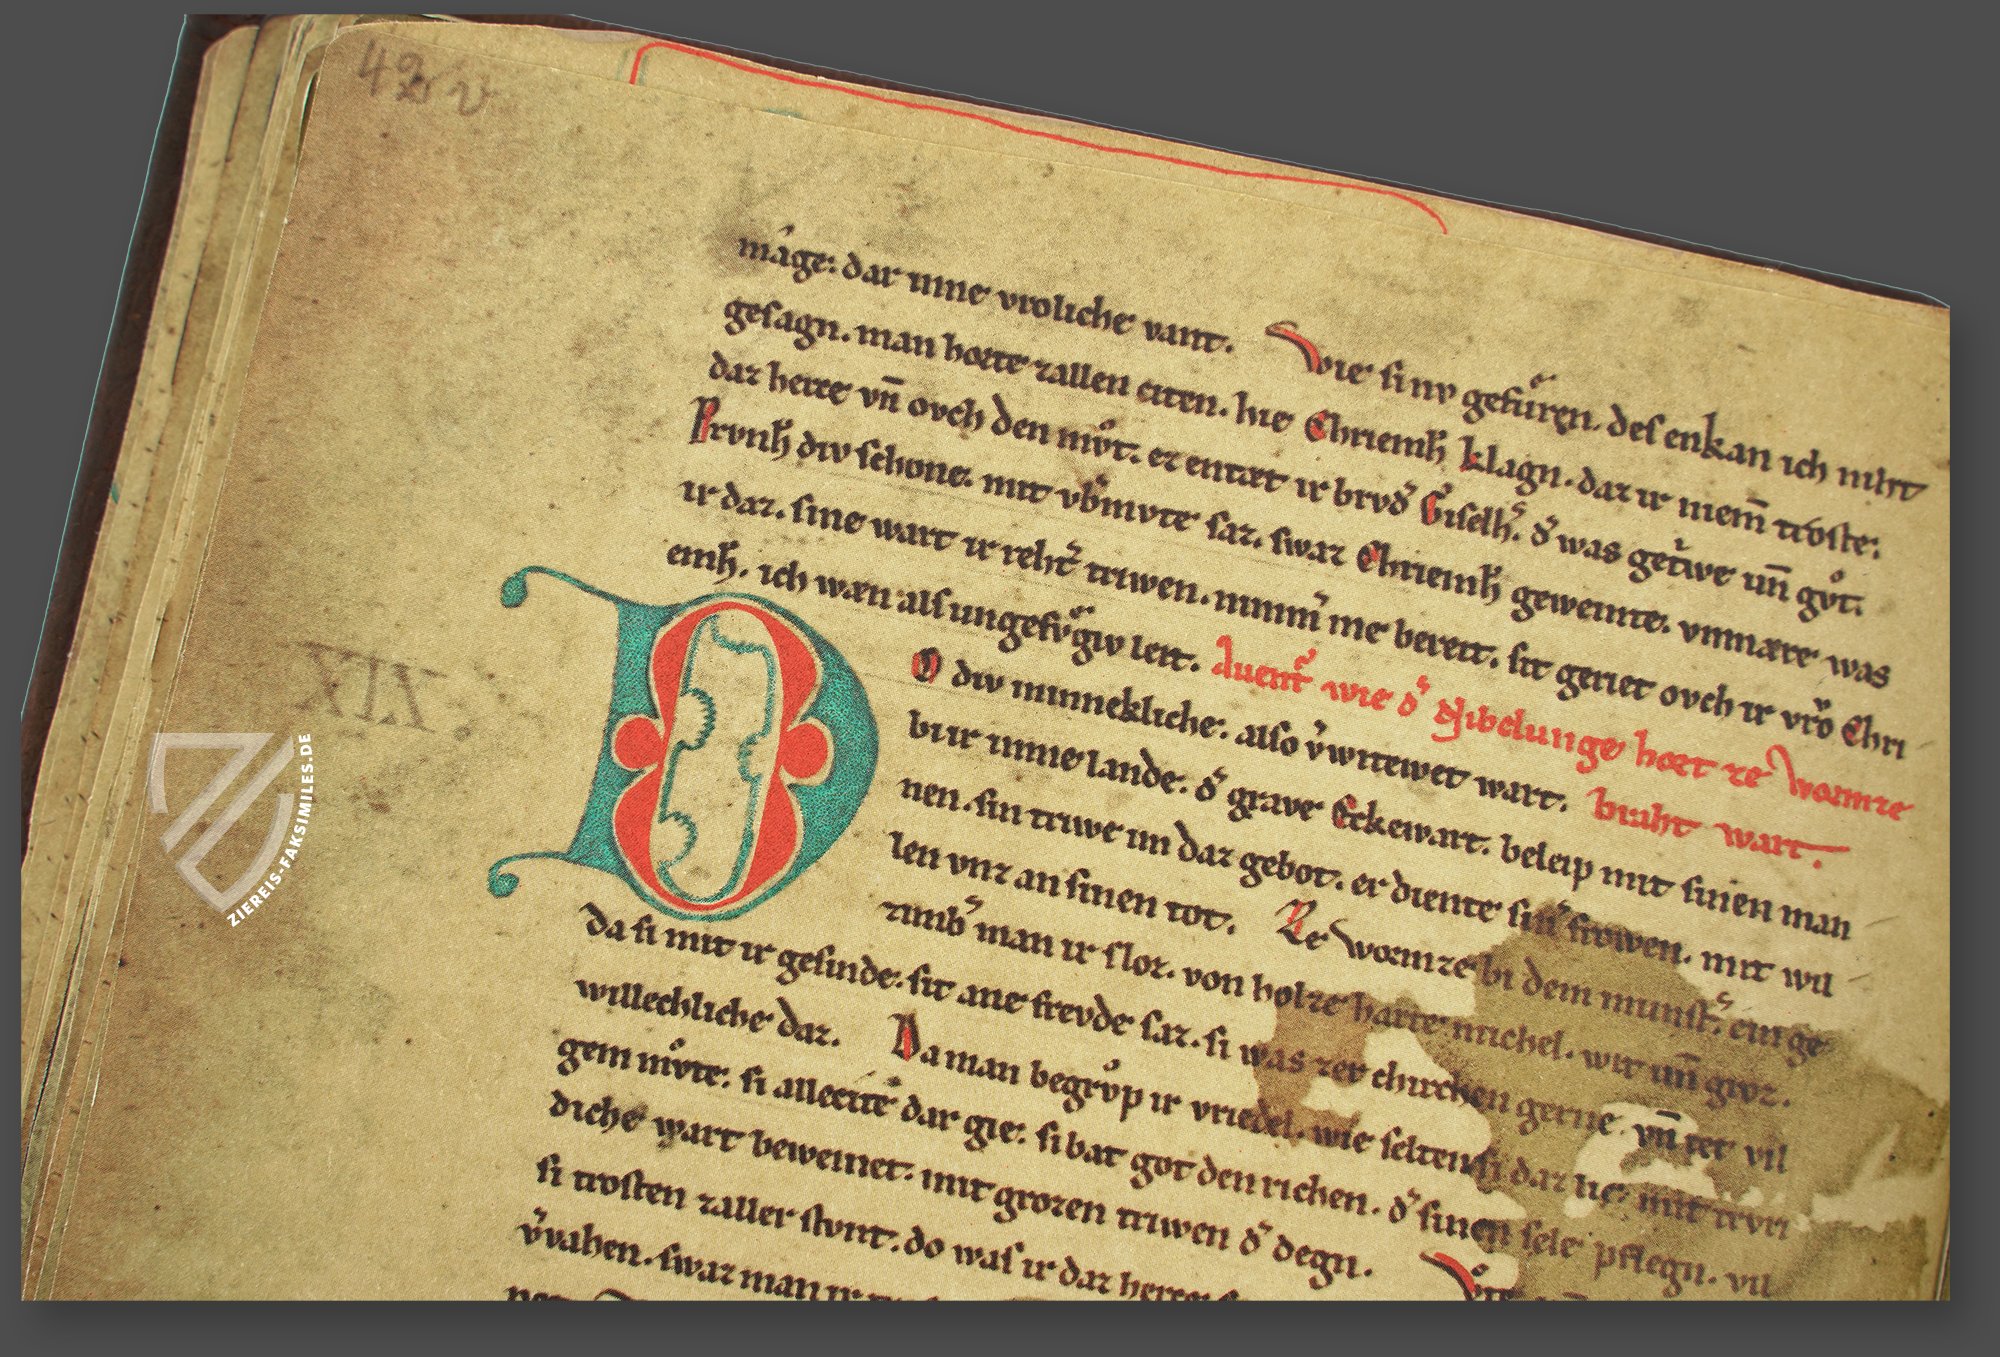 42 v
mâge: dar inne vroliche vant. Wie si nv gefůren. des enkan ich niht
gesagn. man horte zallen citen. hie Chriemh̄ klagn. daz ir niem̄ trôste:
daz herce vn̄ ovch den můt. ez entæt ir brvd̛ Giselh̛. d̛ was getriwe un̄ gůt.
Prvnh̄ div schone. mit vb̛mvte saz. swaz Chriemh̄ geweinte. vnmære was
ir daz. sine wart ir reht̛ triwen. nimm̛ me bereit. sit geriet ovch ir vrŏ Chri
emh̄. ich wæn als ungefv̊giv leit. Auent̛ wie d̛ Nibelunge hort ze Wormze
O div minnekliche. also v̛witewet wart. braht wart.
bi ir inme lande. d̛ grave Eckewart. beleip mit sinen man
nen. sin triwe im daz gebot. er diente sin̛ frowen. mit wil
len vnz an sinen tot. Ze Wormze bi dem munst̛. ein ge
zimb̛ man ir sloz. von holze harte michel. wit un̄ groz.
da si mit ir gesinde. sit ane frevde saz. si was zer chirchen gerne. vn̄ tet vil
willechliche daz. Da man begrůp ir vriedel. wie selten si daz lie: mit trvri
gem mv̊te: si allecite dar gie: si bat got den richen. d̛ sinen sele pflegn. vil
diche wart beweinet. mit grozen triwen d̛ degn.
si trosten zaller stvnt. do was ir daz herce
v̛vahen. swaz man ir
XIX
ZIEREIS-FAKSIMILES.DE